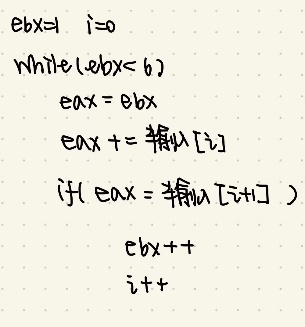 ebx=1 i=0
while(ebx<6)
eax = ebx
eax += 输入[i]
if( eax = 输入[i+1] )
ebx++
i++